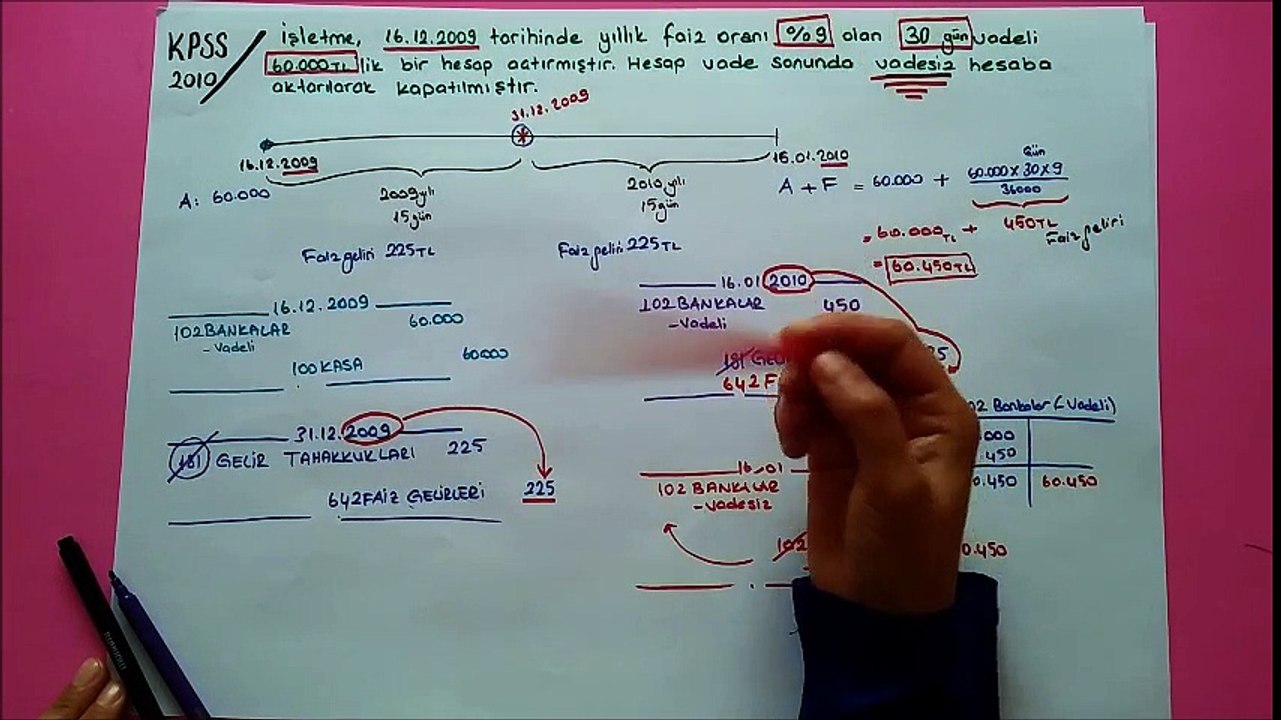 KPSS
2010
İşletme, 16.12.2009 tarihinde yıllık faiz oranı %9 olan 30 gün vadeli
60.000TL lik bir hesap açtırmıştır. Hesap vade sonunda vadesiz hesaba
aktarılarak kapatılmıştır.
31.12.2009
16.12.2009
16.01.2010
A: 60.000
2009 yılı
15 gün
2010 yılı
15 gün
Gün
A + F = 60.000 + 60.000 x 30 x 9
36000
450TL
Faiz geliri
= 60.000 TL +
= 60.450TL
Faiz geliri 225TL
Faiz geliri 225TL
16.12.2009
102 BANKALAR 60.000
- Vadeli
100 KASA 60.000
31.12.2009
181 GELİR TAHAKKUKLARI 225
642 FAİZ GELİRLERİ 225
16.01 2010
102 BANKALAR 450
- Vadeli
181
642 F
Bankalar (Vadeli)
000
450
.450 60.450
16.01
102 BANKALAR
- Vadesiz
102
0.450